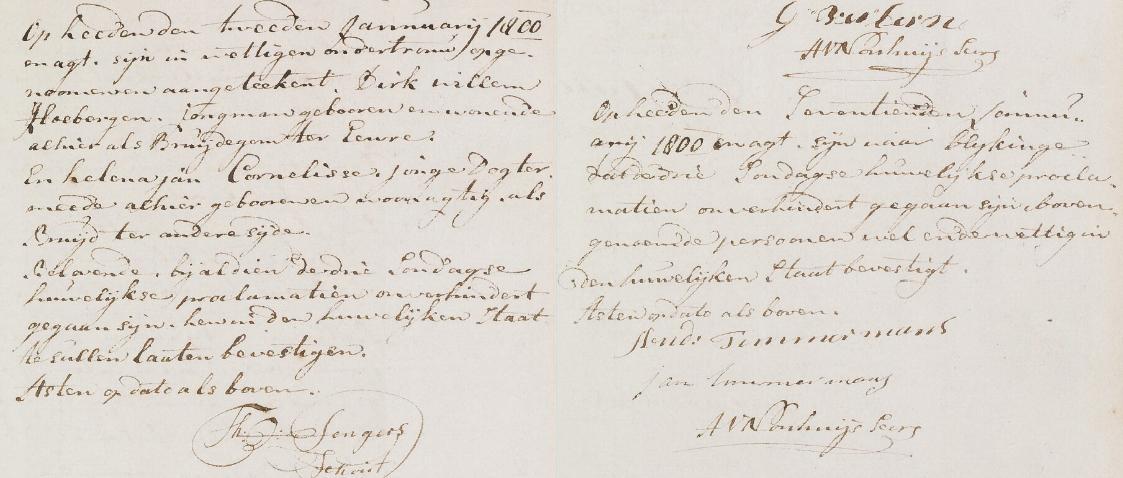 Op heeden den tweeden Jannuarij 1800
en agt. sijn in wettigen ondertrouw opge-
noomen en aangeteekent. Dirk willem
Hoebergen. Jongman gebooren en woonende
alhier als Bruijdegom ter Eenre.
En helena jan Cornelisse. jonge Dogter.
meede alhier gebooren en woonagtig. als
Bruijd ter andere sijde.
Beloovende. bij aldien derdrie Sondagse
huwelijkse proclamatien onverhindert
gegaan sijn. hem in den huwelijken Staat
te sullen laaten bevestigen.
Asten op dato als boven.
Th: Sengers
Schout
AVN Conhuijs Secrs
Op heeden den Seventienden Jannu-
arij 1800 en agt. sijn naar blijkinge
dat derdrie Sondagse huwelijkse procla-
matien onverhindert gegaan sijn. boven-
genoemde persoonen wel ende wettig in
den huwelijken Staat bevestigt.
Asten op dato als boven.
Timmermans
jan timmermans
AVN Conhuijs Secrs